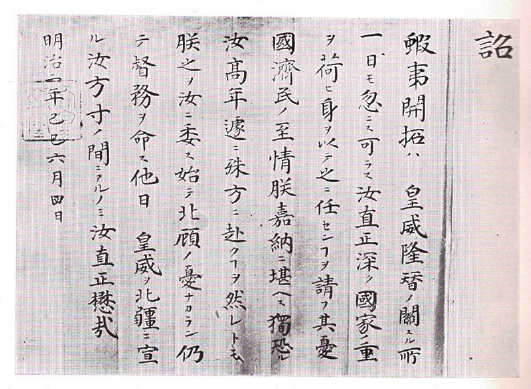 詔
蝦夷開拓ハ 皇威隆替ノ關スル所
一日モ忽ニス可ラス汝直正深ク國家ノ重
ヲ荷ヒ身ヲ以テ之ニ任センヿヲ請フ其憂
國濟民ノ至情朕嘉納ニ堪ヘス獨恐ル
汝高年遽ニ殊方ニ赴クヿヲ然レトモ
朕之ヲ汝ニ委ス始テ北顧ノ憂ナカラン仍
テ督務ヲ命ス他日 皇威ヲ北疆ニ宣
ル汝方寸ノ間ニアルノミ汝直正懋哉
明治二年己巳六月四日